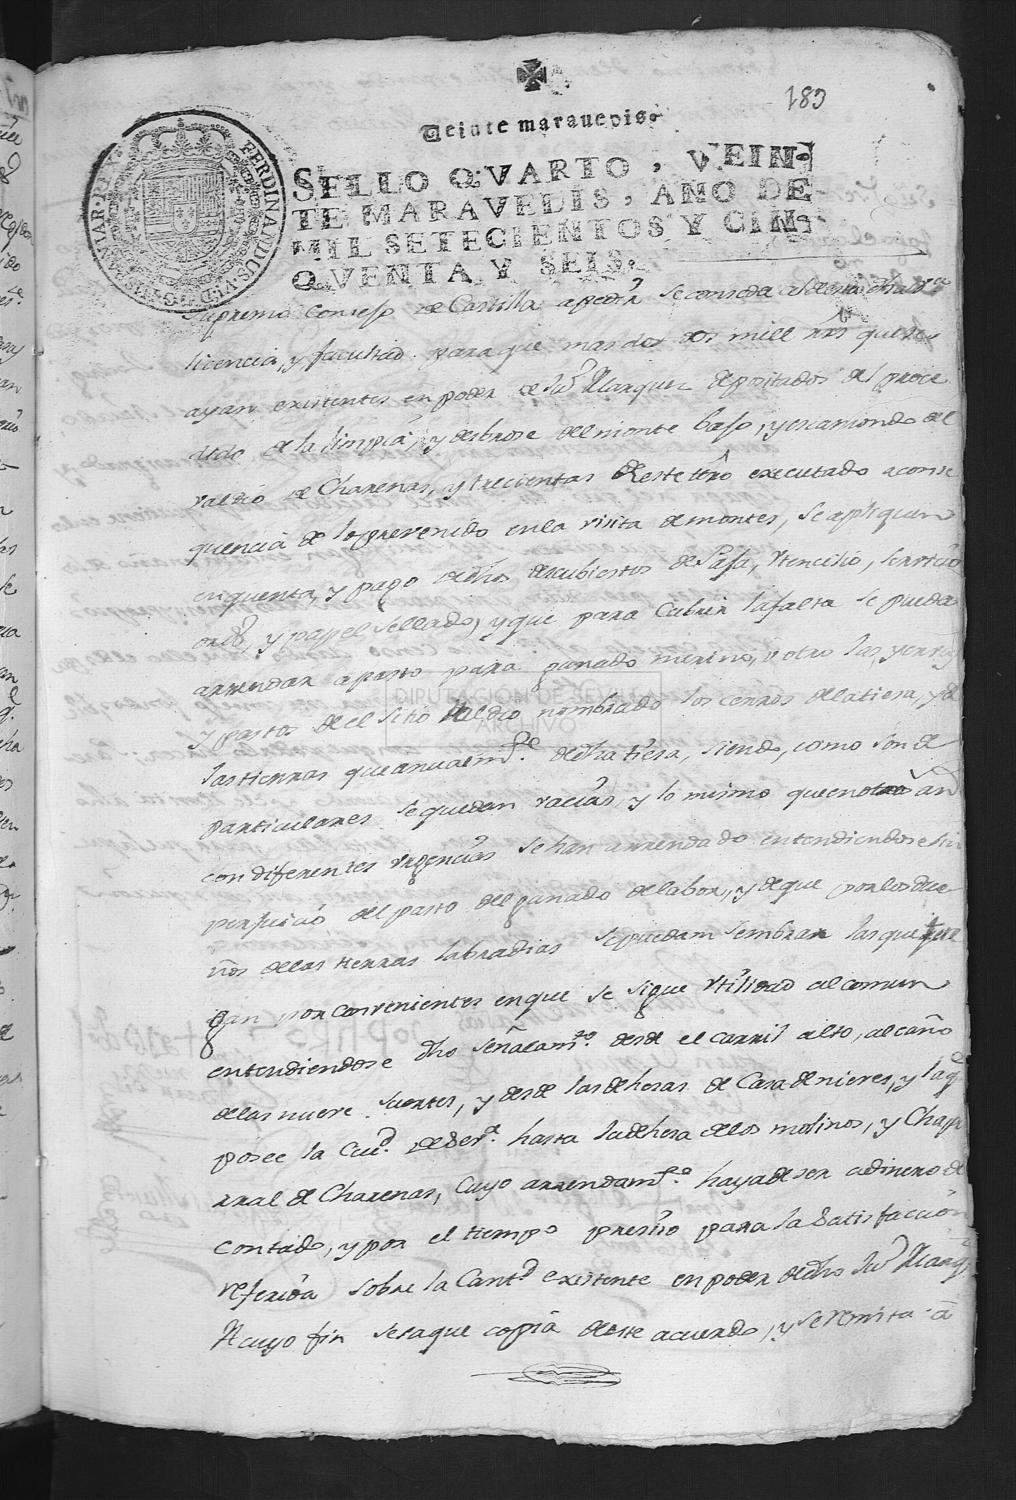 183
Veinte maravedis.
SELLO QVARTO, VEIN-
TE MARAVEDIS, AÑO DE
MIL SETECIENTOS Y CIN-
QVENTA Y SEIS.
FERDINANDUS VI D G HISPANIAR REX
Supremo Consejo de Castilla a pedir se conseda
licencia, y facultad para que mas de dos mill rrs que se
ayan existentes en poder de Juº Marquez depositados del proce
dido de la limpia, y desbrose del monte bajo, y escamondo del
valdio de Charenas, y trecientas deste ttrño executado a conse
quencia de lo prevenido en la visita de montes, se apliquen
en quenta, y pago de dhos descubiertos de Paja, Vtencilio, servicio
ordº, y papel sellado, y que para Cubrir la falta se pueda
arrendar a pasto para ganado merino, v otro las yervas
y pastos de el sitio valdio nombrado los cerros de la tiesa, y de
las tierras que anualmte. de dha tiesa, siendo, como son de
particulares se quedan vacias, y lo mismo que
con diferentes vrgencias se han arrendado entendiendose sin
perjuicio del pasto del ganado de labor, y de que por los due
ños de las tierras labradias se puedan sembrar las que
gan por convenientes en que se sigue vtilidad al comun
entendiendose dho señalamto. desde el carril alto, al caño
de las nueve suertes, y desde las dehesas de Casa de nieves, y la q
posee la Ciud. de Sevª. hasta la dehesa de los molinos, y Chapa
rral de Charenas, cuyo arrendamto. haya de ser a dinero de
contado, y por el tiempo presiso para la Satisfaccion
referida sobre la Cantd existente en poder de dho Juº Marqz
A cuyo fin se saque copia deste acuerdo, y se remita a
DIPUTACIÓN DE SEVILLA
ARCHIVO